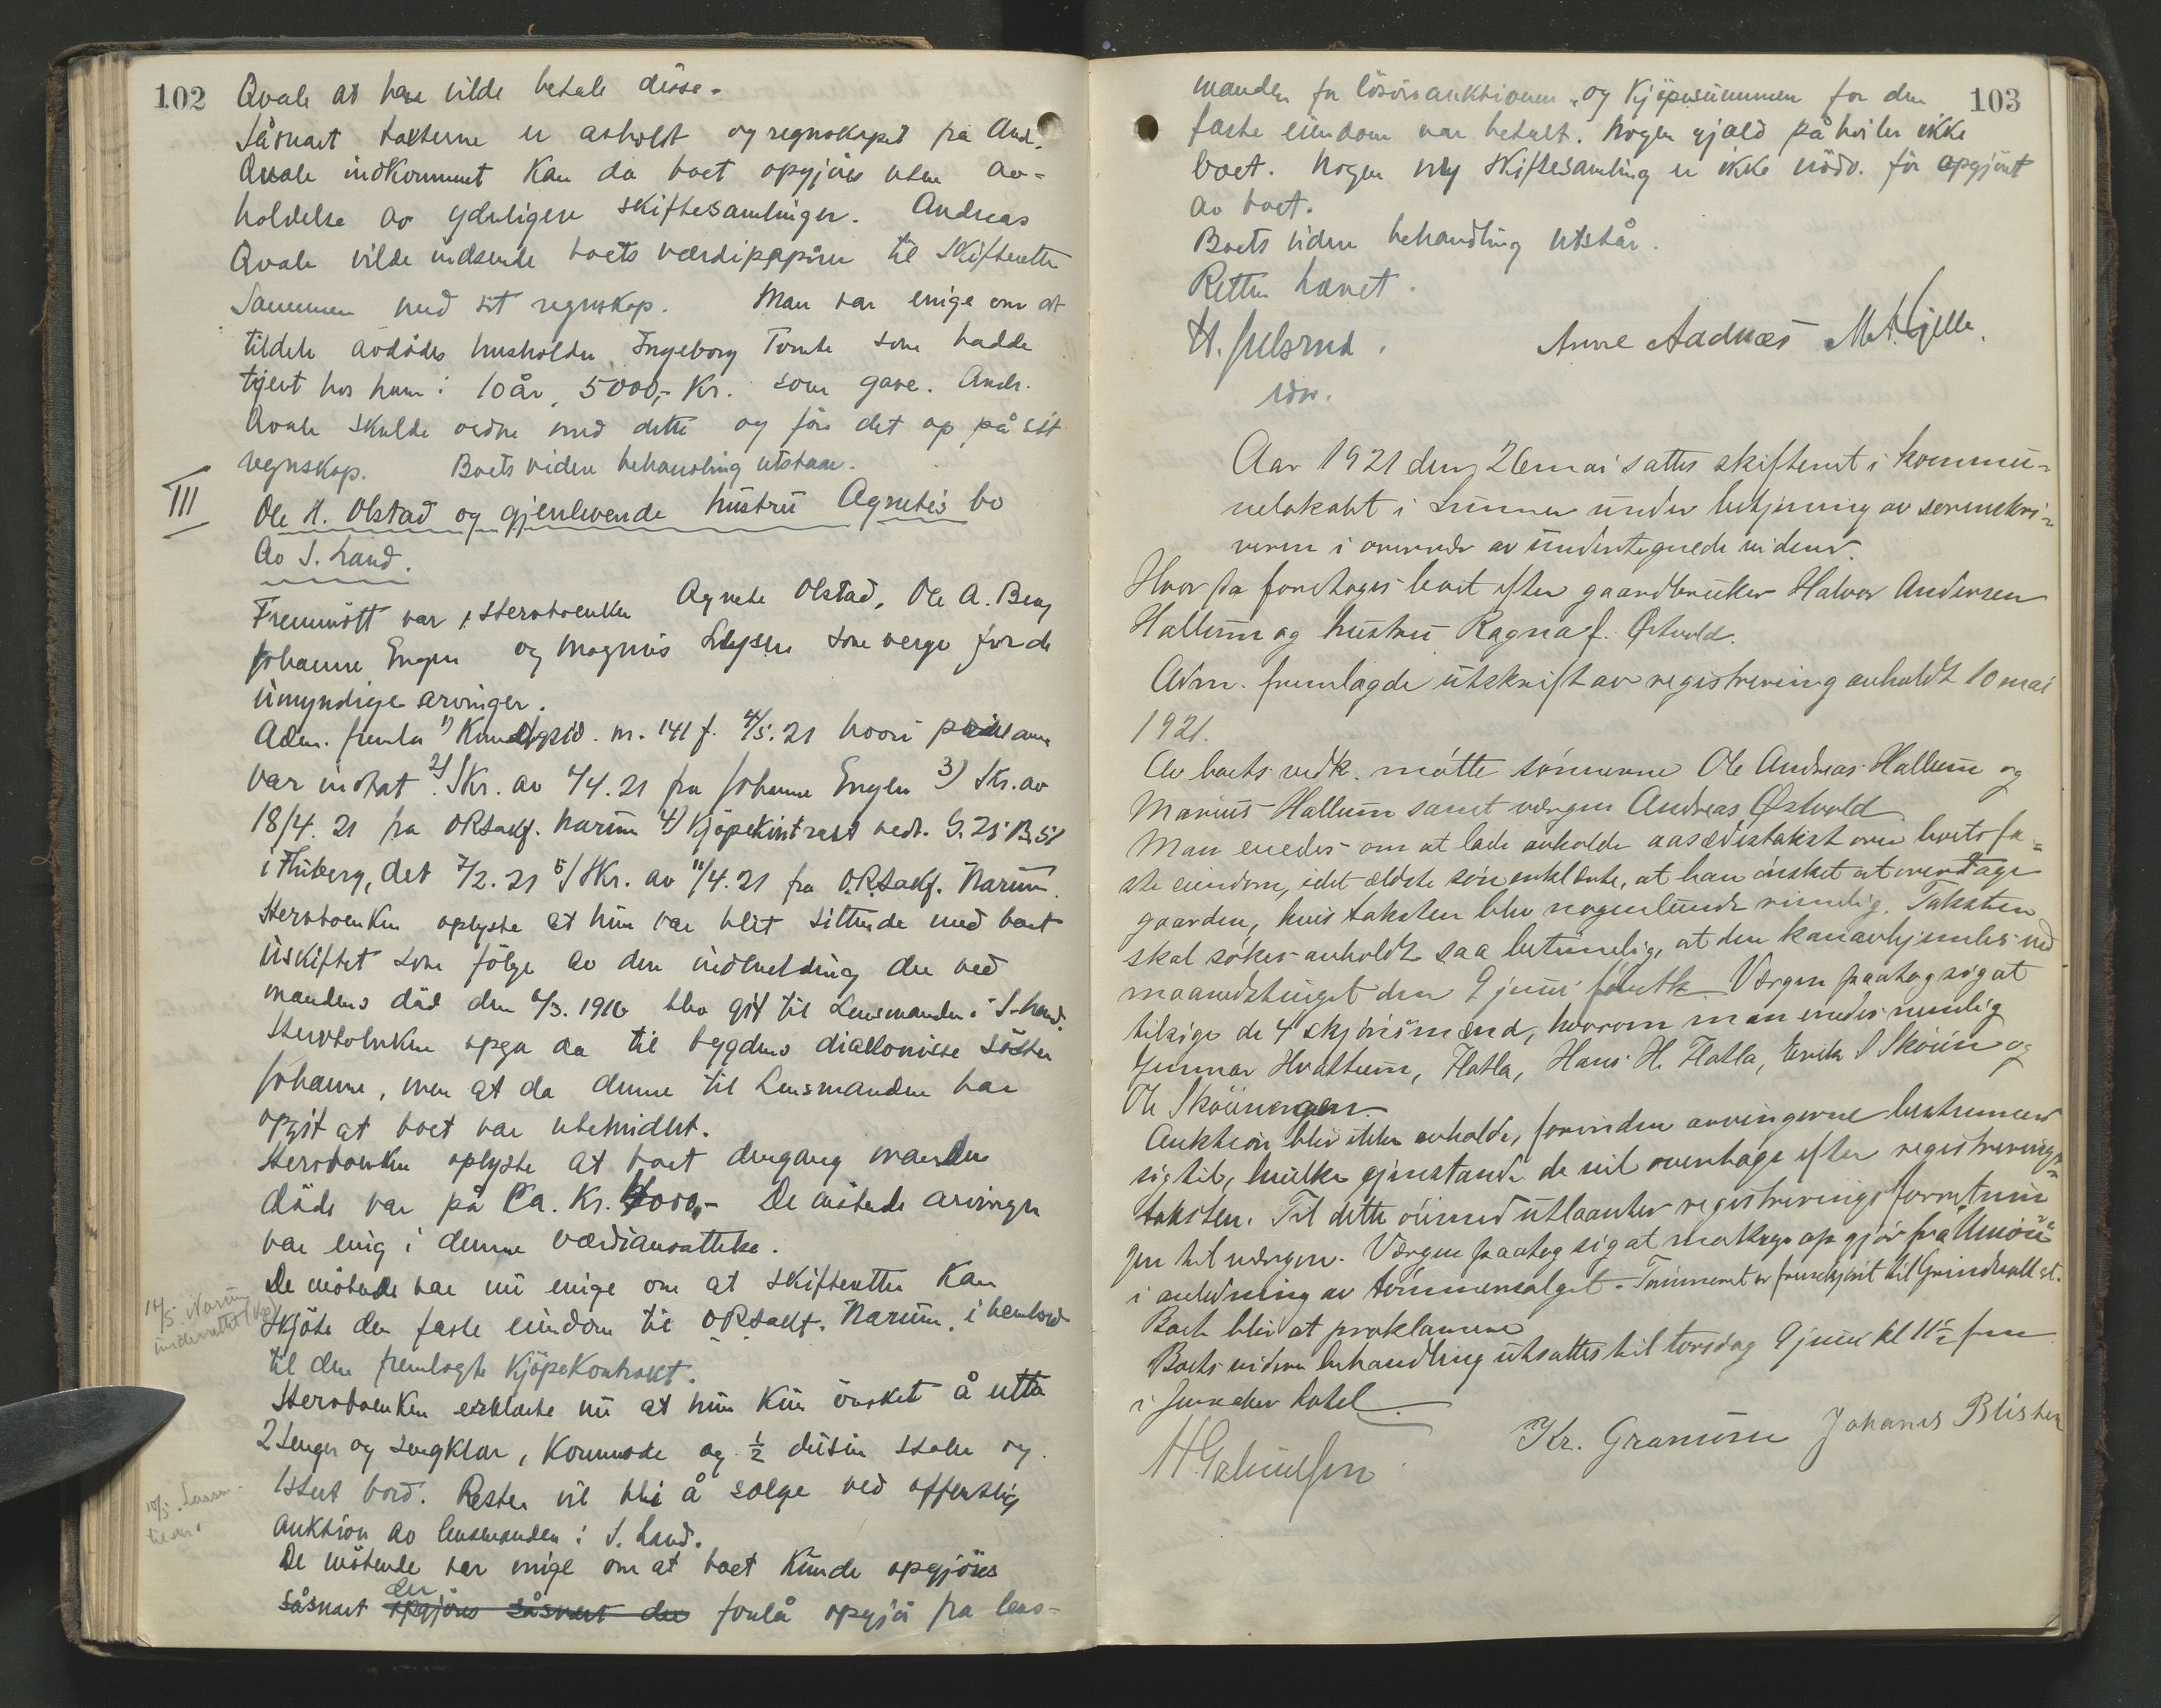 102
Qvale at han vilde betale disse.
Såsnart taxterne er avholdt og regnskapet fra And.
Qvale indkommet kan da boet opgjöres uten av-
holdelse av yderligere skiftesamlinger. Andreas
Qvale vilde indsende boets værdipapirer til Skifteretten
sammen med sit regnskap. Man var enige om at
tildele avdödes husholder Ingeborg Tomte som hadde
tjent hos ham i 10 år, 5000,- Kr. som gave. Andr.
Qvale skulde ordne med dette og före det op på sit
regnskap. Boets videre behandling utstaar.
III
Ole H. Olstad og gjenlevende hustru Agnetes bo
av S. Land.
Fremmött var, stervboenken Agnete Olstad, Ole A. Berg
Johanne Engen og Magnus som verge for de
umyndige arvinger.
Adm. fremla 1) nr. 141 f. 4/5. 21 hvori
var indtat 2) Skr. av 7/4. 21 fra Johanne Engen 3) Skr. av
18/4. 21 fra ORSakf. Narum 4) Kjöpekontrakt vedr. G. 25 B.
i Fluberg, det 7/2. 21 5) Skr. av 11/4. 21 fra O.R.Sakf. Narum.
Stervboenken oplyste at hun var blit sittende med boet
uskiftet som fölge av den indmelding der ved
mandens död den 6/3. 1916 blev git til Lensmanden i S. Land.
Stervboenken opga da til bygdens diakonisse söster
Johanne, men at da denne til Lensmanden har
opgit at boet var ubemidlet.
Stervboenken oplyste at boet dengang manden
döde var på Ca. Kr. 4000,- De mötende arvinger
var enig i denne værdiansættelse.
De mötende var nu enige om at skifteretten kan
skjöte den faste eiendom til ORSakf. Narum, i henhold
til den fremlagte Kjöpekontrakt.
14/5 Narum
underrettet
Stervboenken erklærte nu at hun kun önsket å utta
2 senger og sengklær, kommode og ½ dusin stoler og
1 stuebord. Resten vil bli å sælge ved offentlig
auktion av lensmanden i S. Land.
10/5. Lensm.
De mötende var enige om at boet kunde opgjöres
såsnart opgjöres såsnart der der forelå opgjör fra lens-
103
manden for lösöreauktionen og Kjöpesummen for den
faste eiendom var betalt. Nogen gjæld påhviler ikke
boet. Nogen ny skiftesamling er ikke nödv. för opgjöret
av boet.
Boets videre behandling utstår.
Retten hævet.
H. Julsrud.
Anne Aadnæs M. A. Gjelle.
Aar 1921 den 26 mai sattes skifteret i kommu-
nelokalet i Lunner under betjening av sorenskri-
veren i overvær av undertegnede vidner.
Hvor da foretoges boet efter gaardbruker Halvor Andersen
Hallum og hustru Ragna f. Østvold.
Adm. fremlagde utskrift av registrering avholdt 10 mai
1921.
Av boets vedk. møtte sønnerne Ole Andreas Hallum og
Marius Hallum samt vergen Andreas Østvold
Man enedes om at lade avholde aasædestakst over boets fa-
ste eiendom, idet ældste søn erklærte, at han ønsket at overtage
gaarden, hvis taksten blev nogenlunde rimelig. Taksten
skal søkes avholdt saa betimelig, at den kan avhjemles ved
maanedstinget den 9 juni førstk. Vergen paatog sig at
tilsige de 4 skjønsmænd, hvorom man enedes nemlig
Gunnar Hvattum, Flatla, Hans H. Flatla, Erik S. Skøien og
Ole Skøieneger.
Auktion blir ikke avholdt, forinden arvingerne bestemmer
sig til, hvilke gjenstande de vil overtage efter registrerings-
taksten. Til dette øiemed utlaantes registreringsforretnin-
gen til vergen. Vergen paatog sig at motta opgjør fra Union
i anledning av tømmersalget. Tømmeret er fremkjørt til Grindvoll st.
Boet blir at proklamere
Boets videre behandling utsattes til torsdag 9 juni kl 11½ fm
i Jevnaker hotel
Kr. Granum Johans Blister